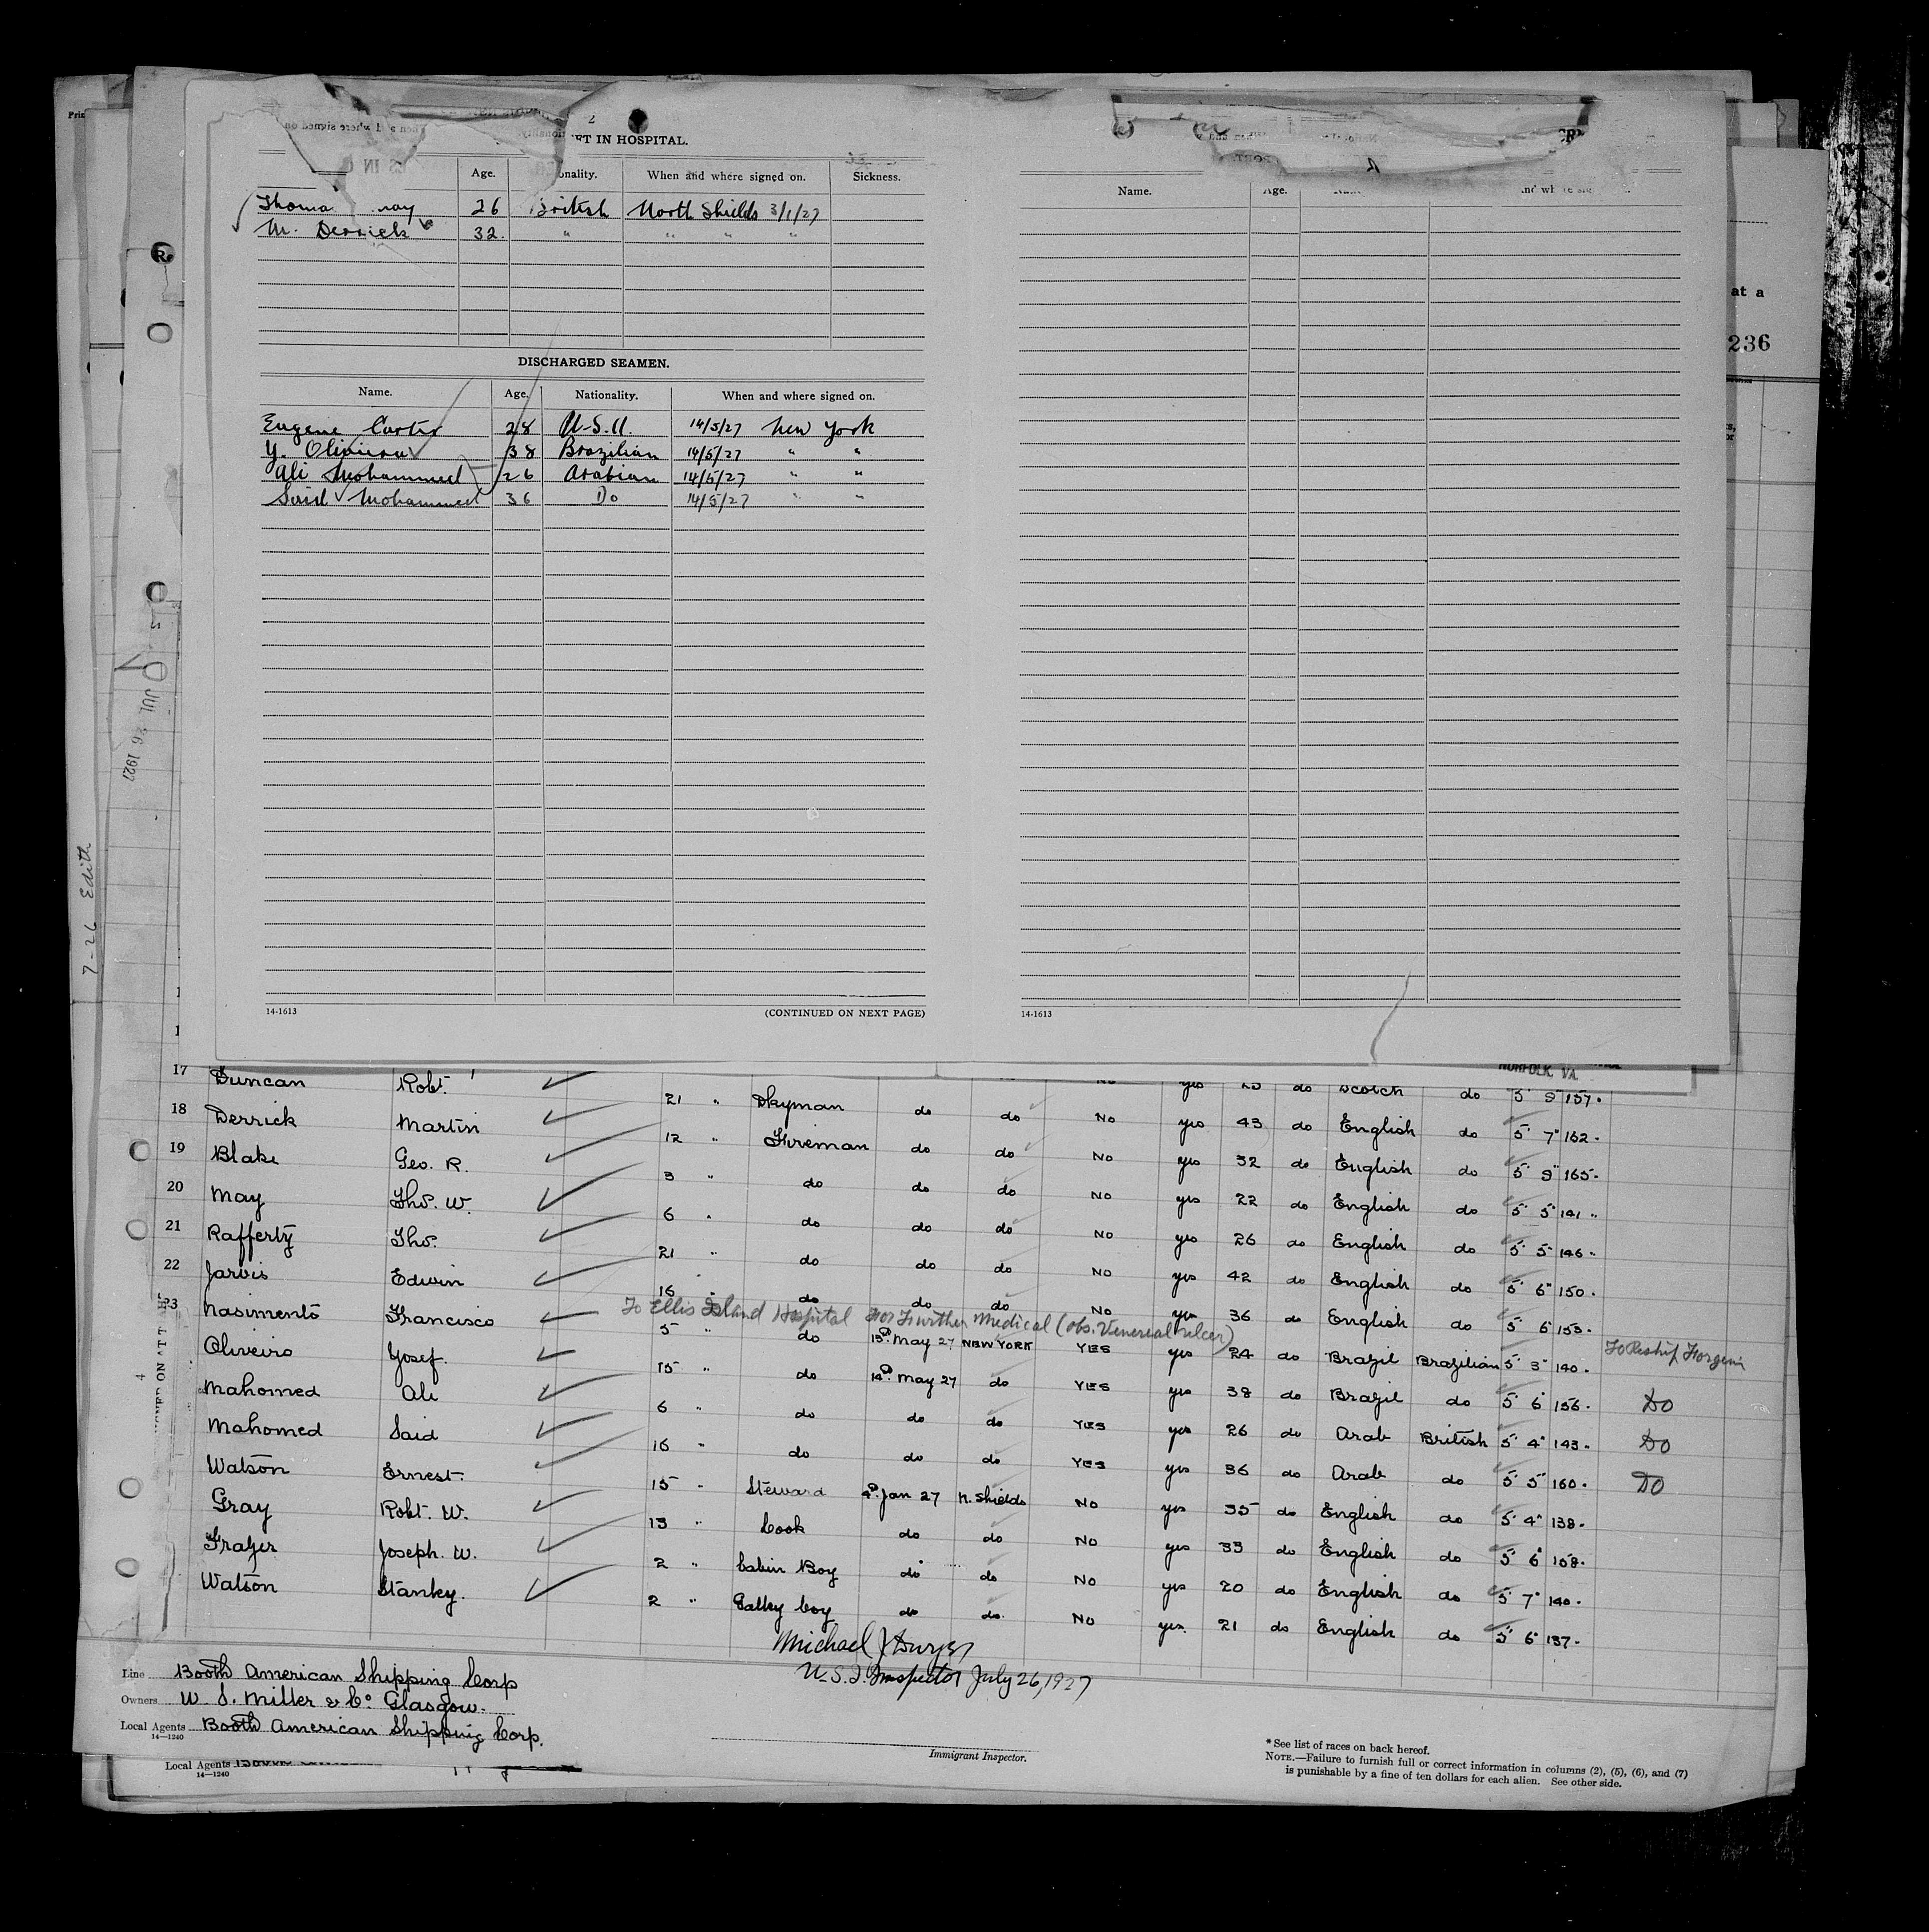 2
FT IN HOSPITAL.
Age. onality. When and where signed on. Sickness.
Thoma ay 26 British North Shields 3/1/27
M. Derrick 32. " " " "
DISCHARGED SEAMEN.
Name. Age. Nationality. When and where signed on.
Eugene Carter 28 U.S.A. 14/5/27 New York
Y. Oliviera 38 Brazilian 14/5/27 " "
Ali Mohammed 26 Arabian 14/5/27 " "
Said Mohammed 36 Do 14/5/27 " "
14-1613 (CONTINUED ON NEXT PAGE)
Name. Age.
14-1613
at a
236
JUL 26 1927
7-26 Edith
NORFOLK, VA.
17 Duncan Robt. 21 " Dkyman do do No yes 43 do English do 5' 7" 162.
18 Derrick Martin 12 " Fireman do do No yes 32 do English do 5' 9" 165.
19 Blake Geo. R. 3 " do do do No yes 22 do English do 5' 5" 141 "
20 May Tho. W. 6 " do do do No yes 26 do English do 5' 5" 146 "
21 Rafferty Tho. 21 " do do do No yes 42 do English do 5' 6" 150.
22 Jarvis Edwin 16 " do do do No yes 36 do English do 5' 6" 153.
To Ellis Island Hospital For Further Medical (obs. Venereal ulcer)
23 Nasimento Francisco 5 " do 13th May 27 NEW YORK YES yes 24 do Brazil Brazilian 5' 3" 140. To Reship Foreign
Oliveiro Yosef. 15 " do 14th May 27 do YES yes 38 do Brazil do 5' 6" 156. Do
Mahomed Ali 6 " do do do YES yes 26 do Arab British 5' 4" 143. Do
Mahomed Said 16 " do do do YES yes 36 do Arab do 5' 5" 160. Do
Watson Ernest. 15 " Steward 4th Jan 27 N. Shields No yes 35 do English do 5' 4" 138.
Gray Robt. W. 13 " Cook do do No yes 33 do English do 5' 6" 158.
Frazer Joseph. W. 2 " Cabin Boy do do No yes 20 do English do 5' 7" 140.
Watson Stanley. 2 " Galley boy do do. No yes. 21 do English do 5' 6" 137.
Michael J Dwyer
U.S.I. Inspector July 26, 1927
Line Booth American Shipping Corp
Owners W. S. Miller & Co Glasgow.
Local Agents Booth American Shipping Corp.
14—1240
Immigrant Inspector.
* See list of races on back hereof.
NOTE.—Failure to furnish full or correct information in columns (2), (5), (6), and (7)
is punishable by a fine of ten dollars for each alien. See other side.
Local Agents
14—1240